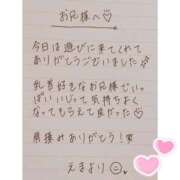 お兄様へ♡
今日は遊びに来てくれて
ありがとうございました
乳首好きなお兄様でいっ
ぱいいじって気持ちよく
なってもらえて良かった♡
鼠蹊みありがとう!
えまより☺